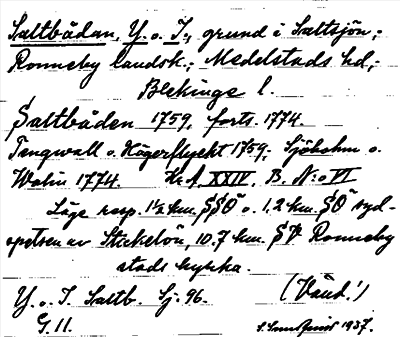 Saltbådan, Y. o. I., grund i Saltsjön;
Ronneby landsk.; Medelstads hd,
Blekinge l.
Saltbåden 1759, forts. 1774
Tengwall o. Hägerflycht 1759; Sjöholm o.
Wolin 1774. Kr. A. XXIV, B. N:o VI
Läge resp. 1½ km. SSO o. 1,2 km. SO syd-
spetsen av Stickelön, 10.7 km. SV Ronneby
stads kyrka.
Y. o. I. Saltb. Sj. 96. (Vänd!)
G. 11. 1937.